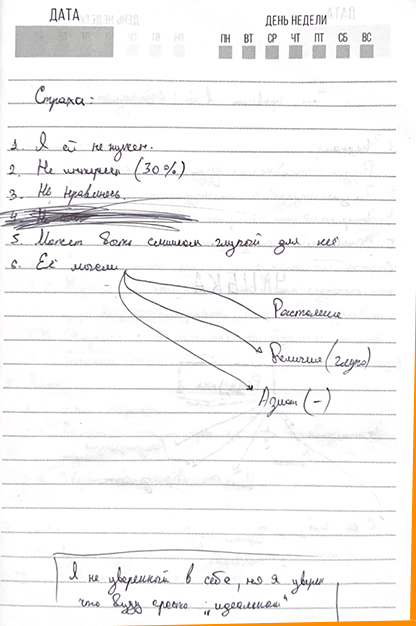 ДАТА
ДЕНЬ НЕДЕЛИ
ПН ВТ СР ЧТ ПТ СБ ВС
Страхи:
1. Я ей не нужен.
2. Не интересен (30%)
3. Не нравлюсь.
4. Не
5. Может быть слишком глупой для неё
6. Её мысли
Расстояние
Величие (глупо)
(-)
Я не уверенный в себе, но я уверен
что буду просто „идеальным"